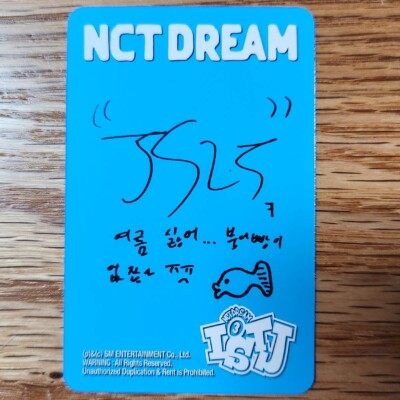 NCT DREAM
여름 싫어... 붕어빵이
없잖아 ㅠㅠ
NCT DREAM
ISTJ
(p)&(c) SM ENTERTAINMENT Co., Ltd.
WARNING : All Rights Reserved.
Unauthorized Duplication & Rent is Prohibited.